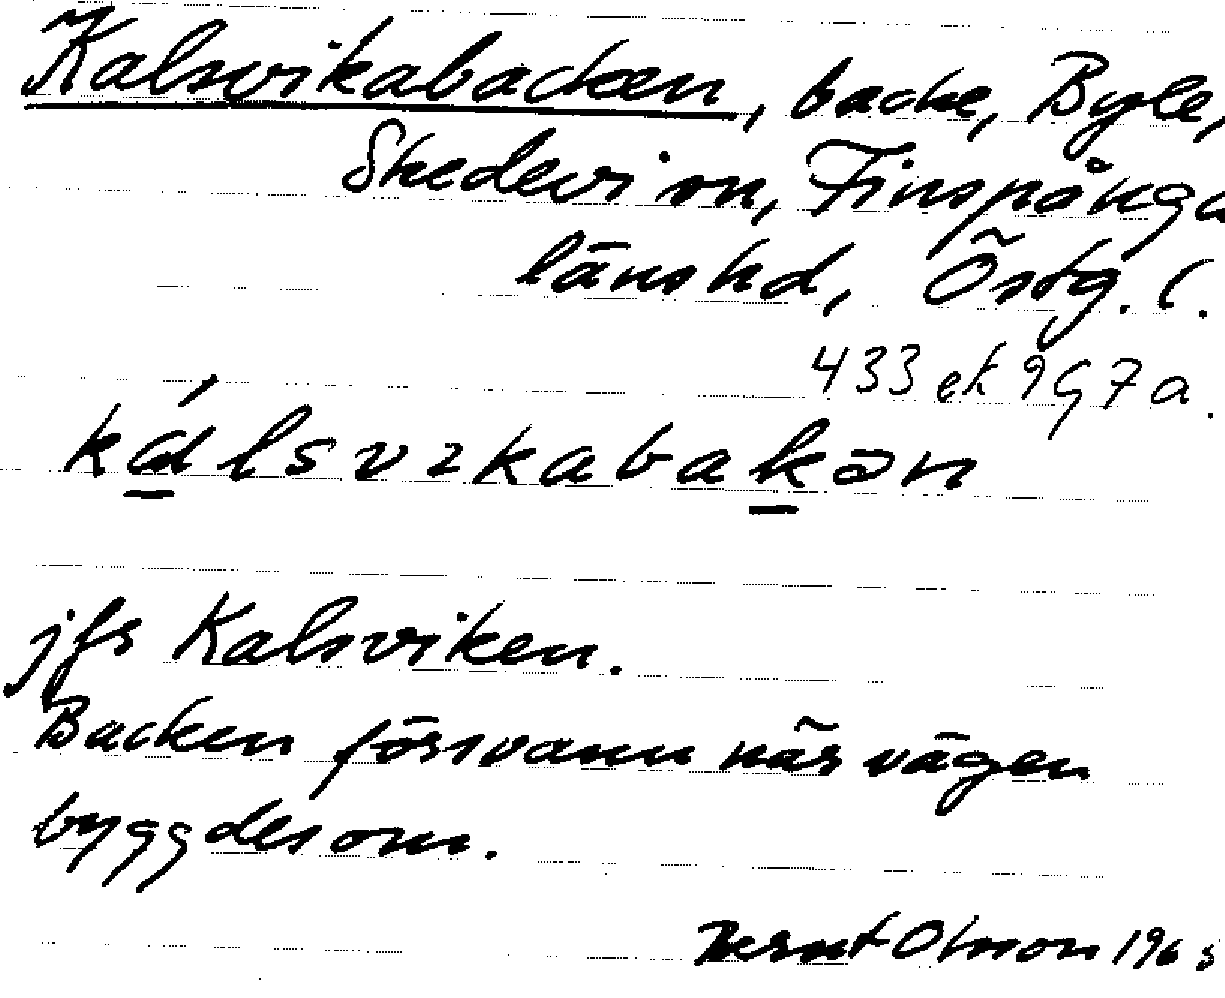 Kalsvikabacken, backe, Byle,
Skedevi sn, Finspånga
länshd, Östg. l.
433 ek 9G7a.
kálsvıkabakən
jfr Kalsviken.
Backen försvann när vägen
byggdes om.
Bernt Olsson 1965